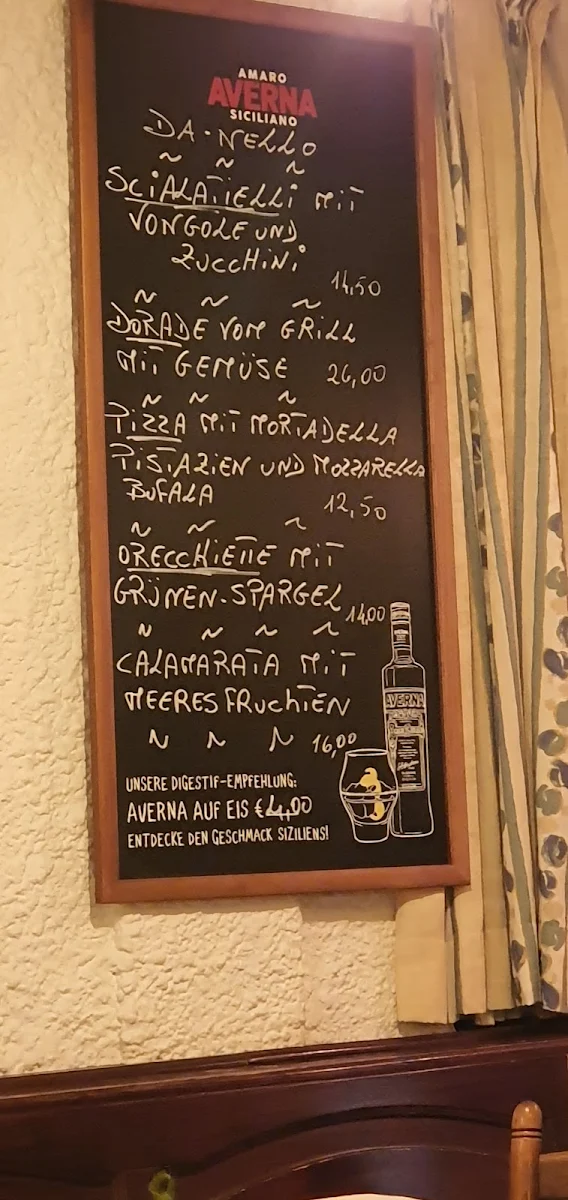 AMARO
AVERNA
SICILIANO
DA·NELLO
~ ~ ~
SCIALATIELLI MIT
VONGOLE UND
ZUCCHINI
14,50
~ ~ ~
DORADE VOM GRILL
MIT GEMÜSE 26,00
~ ~ ~
PIZZA MIT MORTADELLA
PISTAZIEN UND MOZZARELLA
BUFALA 12,50
~ ~ ~
ORECCHIETTE MIT
GRÜNEN-SPARGEL 14,00
~ ~ ~ ~
CALAMARATA MIT
MEERESFRUCHTEN
~ ~ ~ 16,00
AVERNA
UNSERE DIGESTIF-EMPFEHLUNG:
AVERNA AUF EIS €4,00
ENTDECKE DEN GESCHMACK SIZILIENS!